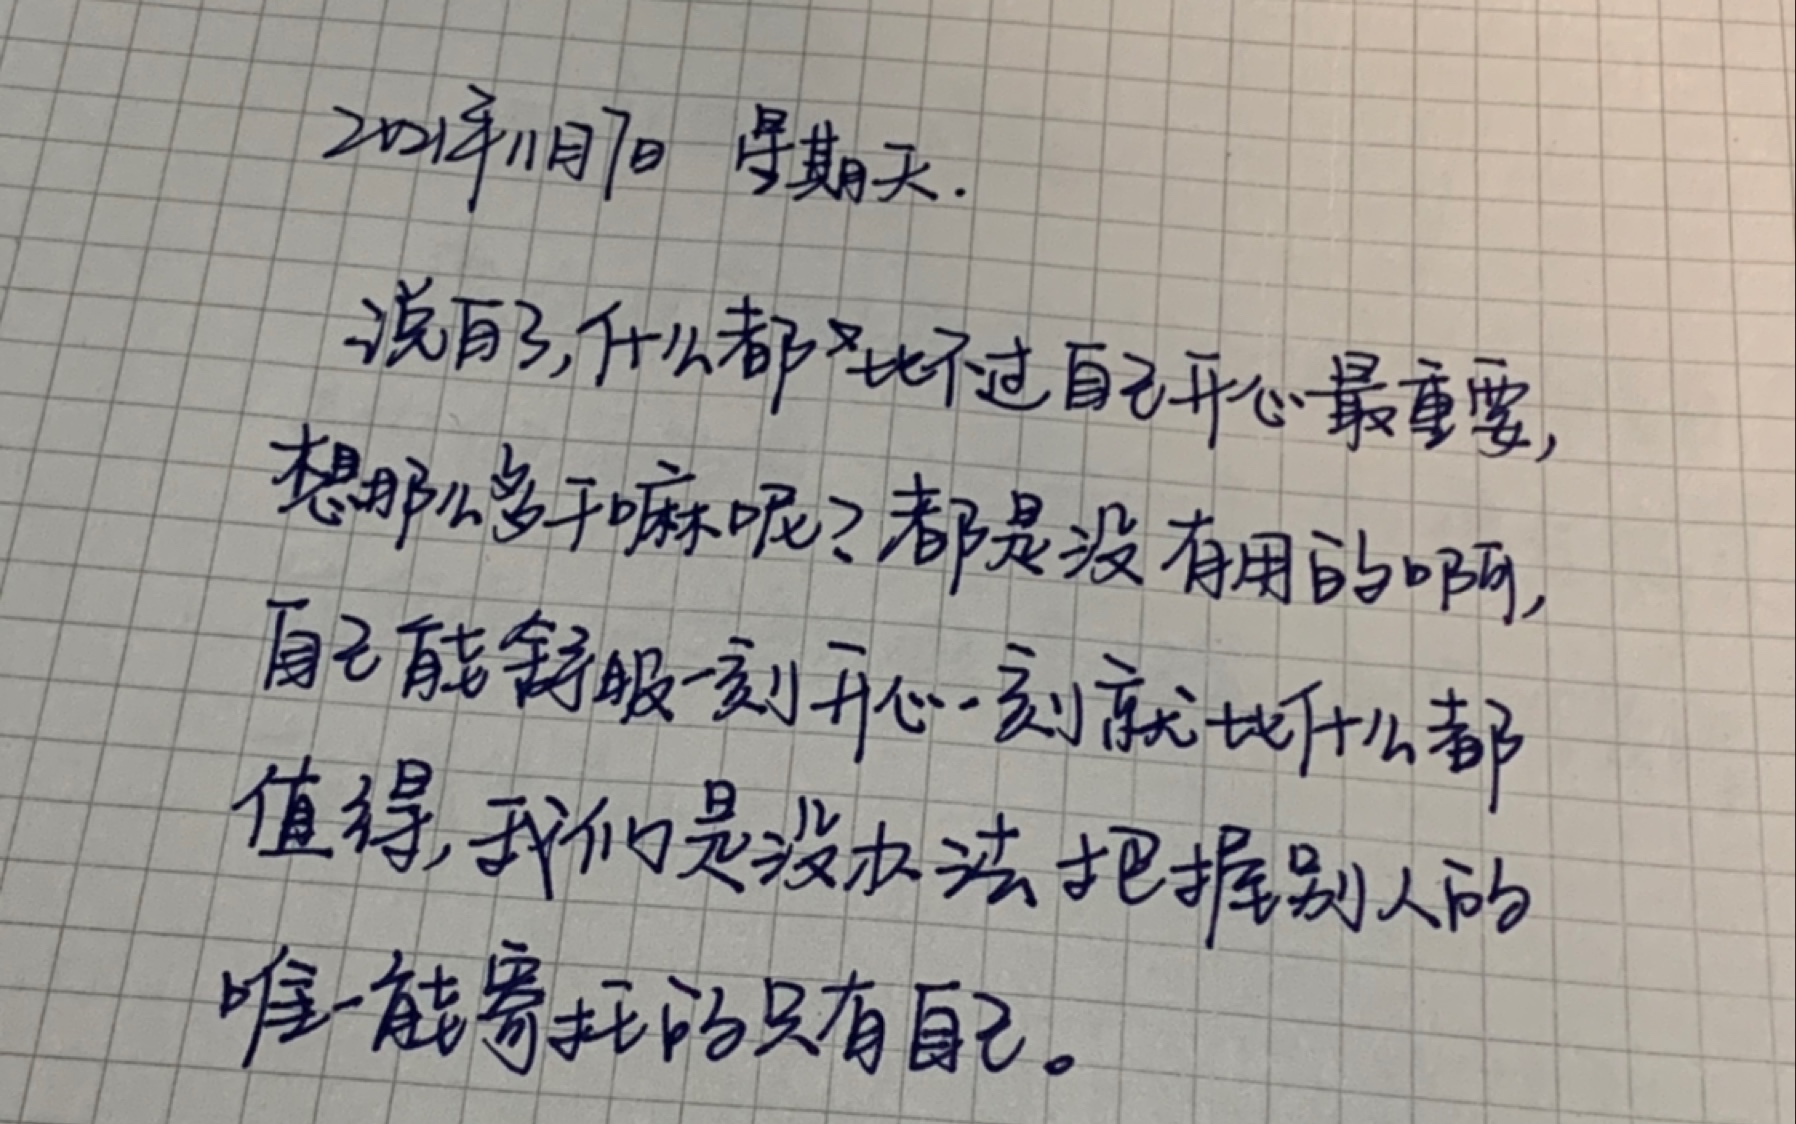 2021年11月7日 星期天.
说白了,什么都比不过自己开心最重要,
想那么多干嘛呢?都是没有用的啊,
自己能舒服一刻开心一刻就比什么都
值得,我们是没办法把握别人的
唯一能寄托的只有自己。